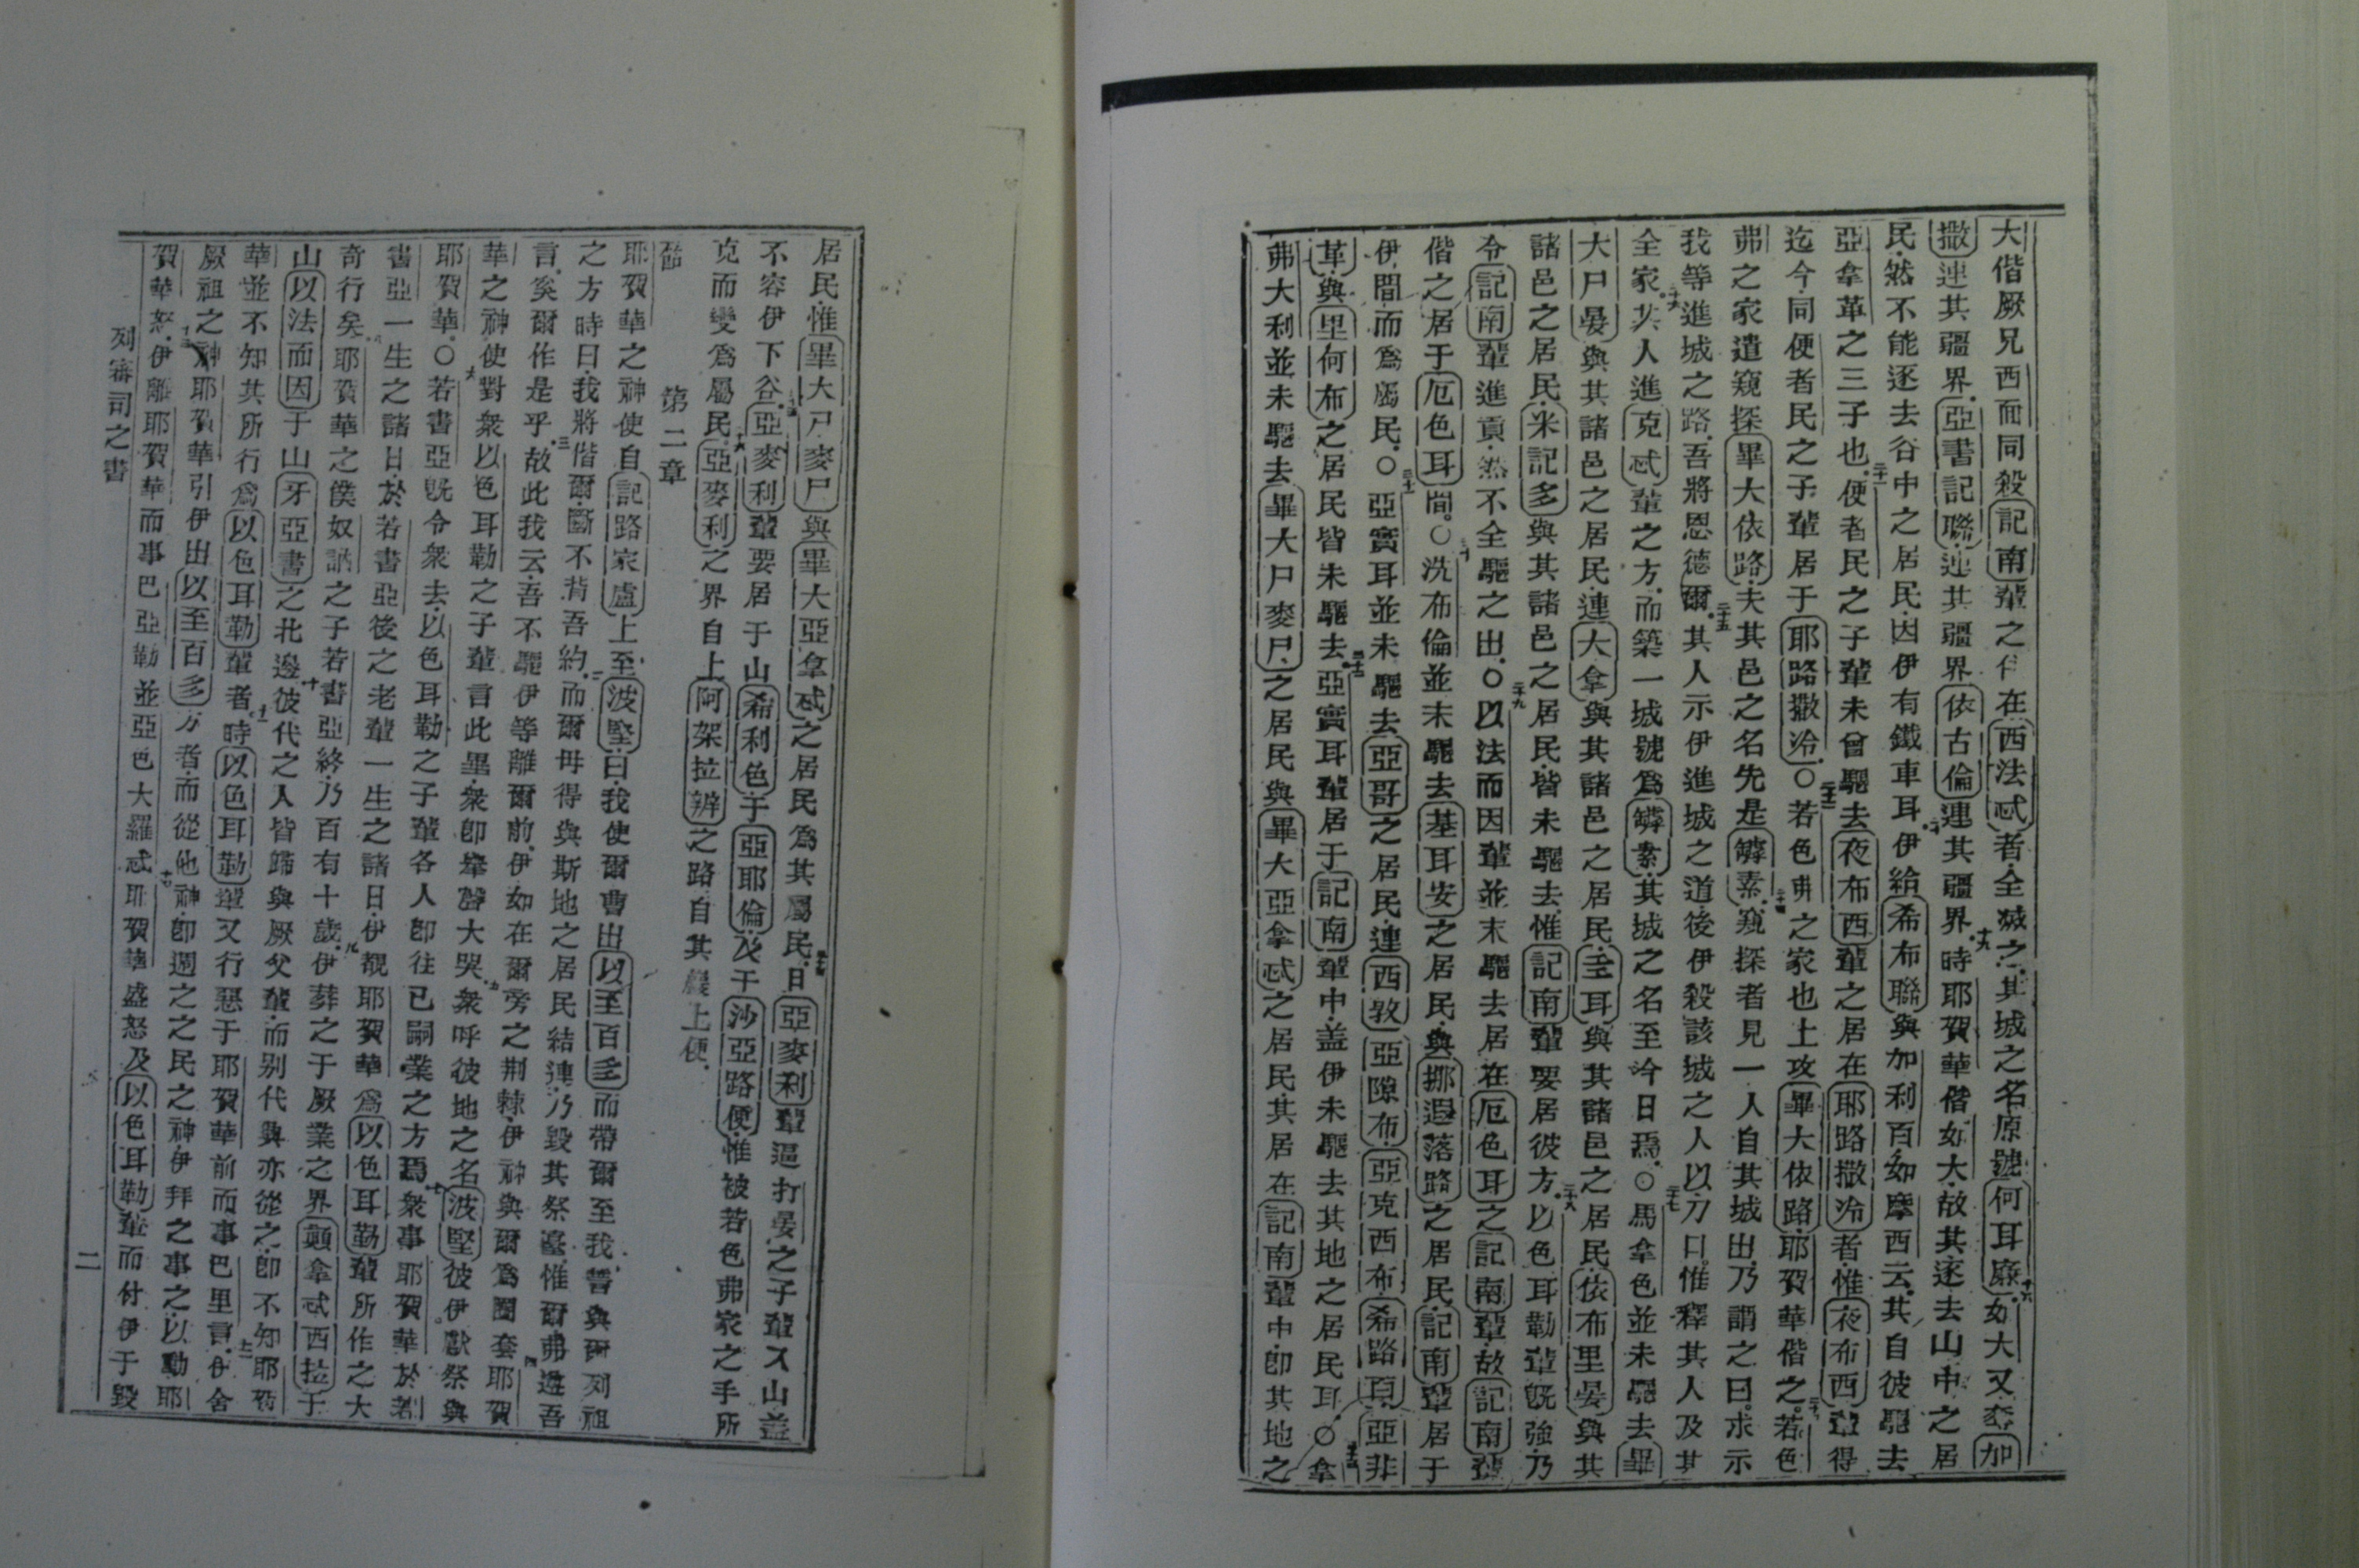 大偕厥兄西面同殺記南輩之住在西法忒者全滅之其城之名原號何耳廉十八如大又奪加
撒連其疆界亞書記聯連其疆界依古倫連其疆界十九時耶賀華偕如大故其逐去山中之居
民然不能逐去谷中之居民因伊有鐵車耳二十伊給希布聯與加利百如摩西云其自彼驅去
亞拿革之三子也二十一便者民之子輩未曾驅去夜布西輩之居在耶路撒冷者惟夜布西輩得
迄今同便者民之子輩居于耶路撒冷○二十二若色弗之家也上攻畢大依路耶賀華偕之二十三若色
弗之家遣窺探畢大依路夫其邑之名先是罅素二十四窺探者見一人自其城出乃謂之曰求示
我等進城之路吾將恩德爾二十五其人示伊進城之道後伊殺該城之人以刀口惟釋其人及其
全家二十六其人進克忒輩之方而築一城號為罅素其城之名至今日焉○二十七馬拿色並未驅去畢
大尸晏與其諸邑之居民連大拿與其諸邑之居民至耳與其諸邑之居民依布里晏與其
諸邑之居民米記多與其諸邑之居民皆未驅去惟記南輩要居彼方二十八以色耳勒輩既強乃
令記南輩進貢然不全驅之出○二十九以法而因輩並未驅去居在厄色耳之記南輩故記南輩
偕之居于厄色耳間○三十洗布倫並未驅去基耳安之居民與挪遐落路之居民記南輩居于
伊間而為屬民○三十一亞實耳並未驅去亞哥之居民連西敦亞隙布亞克西布希路百亞非
革與里何布之居民皆未驅去三十二亞實耳輩居于記南輩中蓋伊未驅去其地之居民耳○三十三拿
弗大利並未驅去畢大尸麥尸之居民與畢大亞拿忒之居民其居在記南輩中即其地之
居民惟畢大尸麥尸與畢大亞拿忒之居民為其屬民三十四曰亞麥利輩逼打晏之子輩入山蓋
不容伊下谷三十五亞麥利輩要居于山希利色于亞耶倫及于沙亞路便惟被若色弗家之手所
克而變為屬民三十六亞麥利之界自上阿架拉辨之路自其巖上便
第二章
耶賀華之神使自記路家盧上至波堅曰我使爾曹出以至百多而帶爾至我誓與爾列祖
之方時曰我將偕爾斷不背吾約二而爾毋得與斯地之居民結連乃毀其祭臺惟爾弗遵吾
言奚爾作是乎三故此我云吾不驅伊等離爾前伊如在爾旁之荆棘伊神與爾為圈套四耶賀
華之神使對衆以色耳勒之子輩言此畢衆即舉聲大哭五衆呼彼地之名波堅彼伊獻祭與
耶賀華○六若書亞既令衆去以色耳勒之子輩各人即往已嗣業之方焉七衆事耶賀華於若
書亞一生之諸日於若書亞後之老輩一生之諸日伊覩耶賀華為以色耳勒輩所作之大
奇行矣八耶賀華之僕奴訥之子若書亞終乃百有十歲九伊葬之于厥業之界顛拿忒西拉于
山以法而因于山牙亞書之北邊十彼代之人皆歸與厥父輩而别代興亦從之即不知耶賀
華並不知其所行為以色耳勒輩者十一時以色耳勒輩又行惡于耶賀華前而事巴里言十二伊舍
厥祖之神耶賀華引伊出以至百多方者而從他神即週之之民之神伊拜之事之以動耶
賀華怒十三伊離耶賀華而事巴亞勒並亞色大羅忒十四耶賀華盛怒及以色耳勒輩而付伊于毀
列審司之書
二